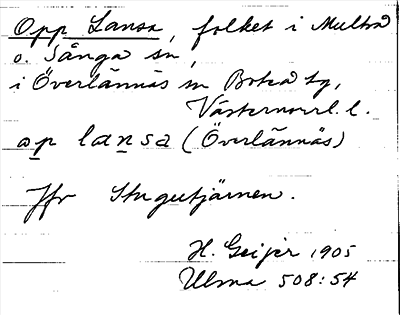 Opp Lansa, folket i Multrå
o. Sånga sn,
i Överlännäs sn Boteå tg,
Västernorrl. l.
ap lansa (Överlännäs)
Jfr Stugutjärnen.
H. Geijer 1905
Ulma 508:54